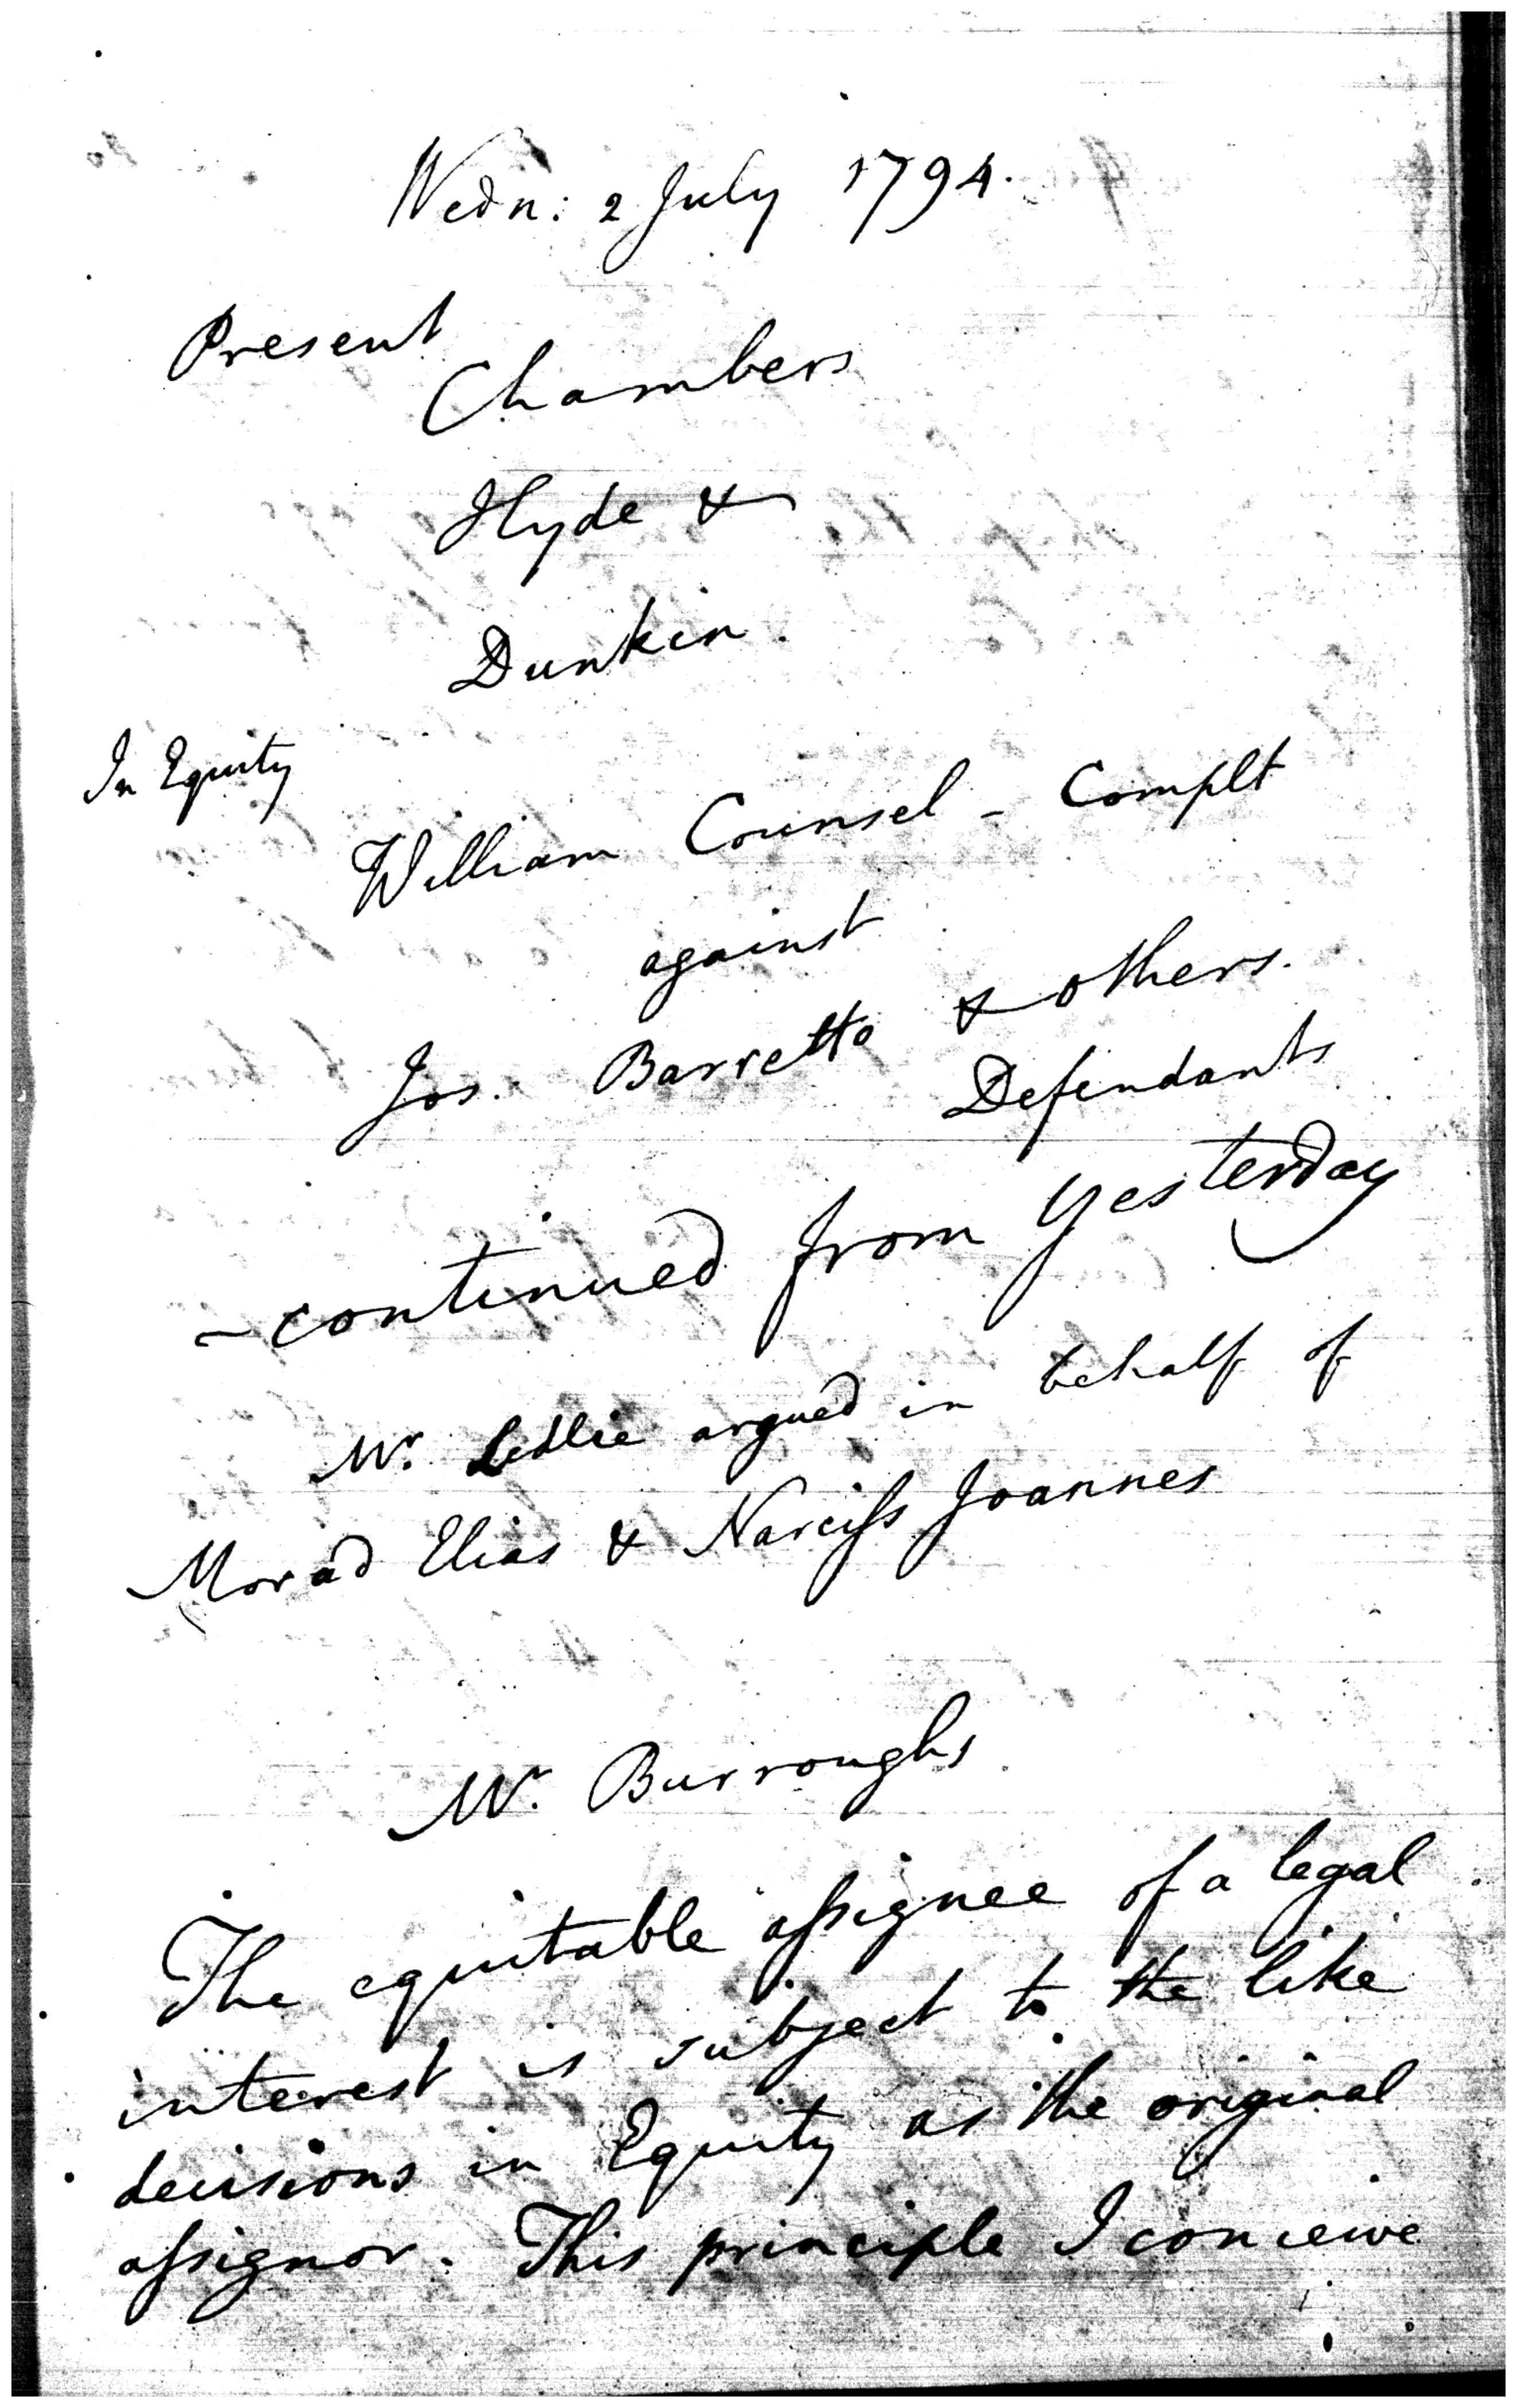 Wedn: 2 July 1794.
Present
Chambers
Hyde &
Dunkin.
In Equity
William Counsel - Complt
against
Jos. Barretto & others.
Defendants
- continued from Yesterday
Mr. Ledlie argued in behalf of
Morad Elias & Narciſs Joannes
Mr. Burroughs.
The equitable aſsignee of a legal
interest is subject to the like
decisions in Equity as the original
aſsignor. This principle I conceive